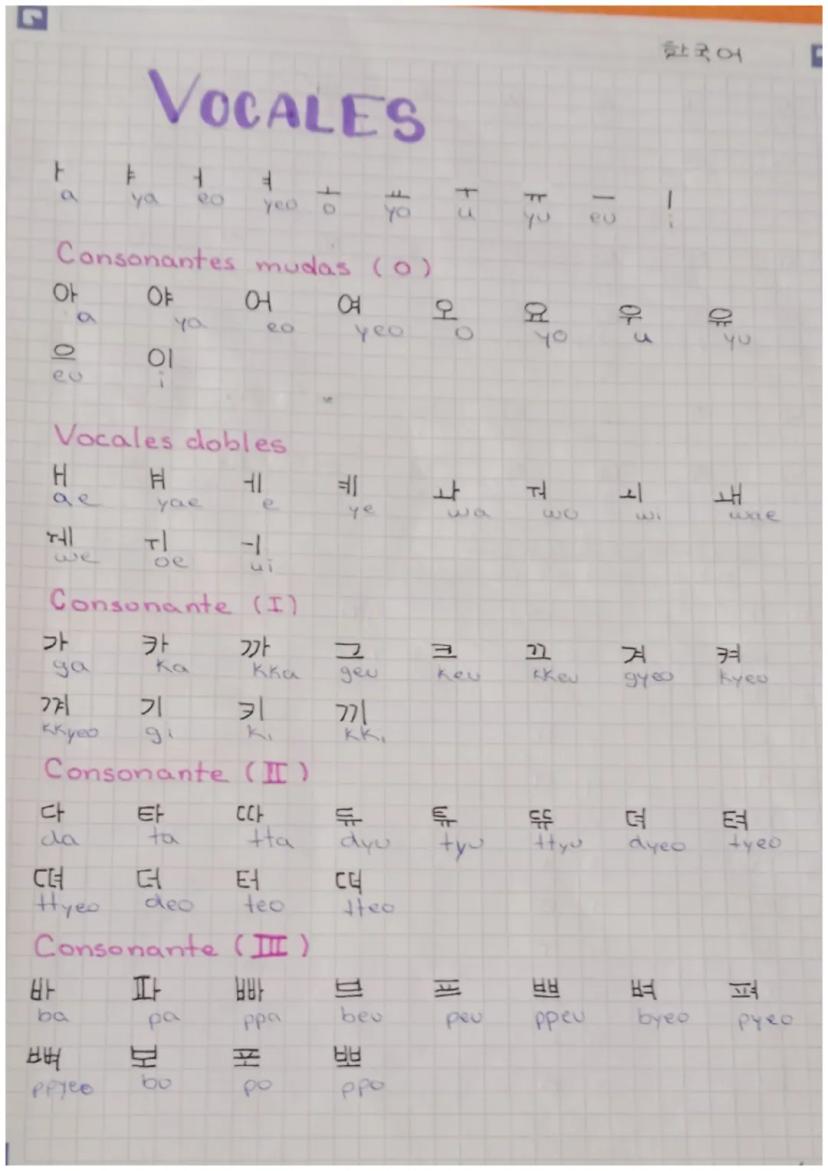 한국어
VOCALES
ㅏ ㅑ ㅓ ㅕ ㅗ ㅛ ㅜ ㅠ ㅡ ㅣ
a ya eo yeo o yo u yu eu i
Consonantes mudas (ㅇ)
아 야 어 여 오 요 우 유
a ya eo yeo o yo u yu
으 이
eu i
Vocales dobles
ㅐ ㅒ ㅔ ㅖ ㅘ ㅝ ㅚ ㅙ
ae yae e ye wa wo wi wae
ㅞ ㅟ ㅢ
we oe ui
Consonante (I)
가 카 까 그 크 끄 겨 켜
ga ka kka geu keu kkeu gyeo kyeo
껴 기 키 끼
kkyeo gi ki kki
Consonante (II)
다 타 따 듀 튜 뜌 뎌 텨
da ta tta dyu tyu ttyu dyeo tyeo
뗘 더 터 떠
ttyeo deo teo tteo
Consonante (III)
바 파 빠 브 프 쁘 벼 펴
ba pa ppa beu peu ppeu byeo pyeo
뼈 보 포 뽀
ppyeo bo po ppo